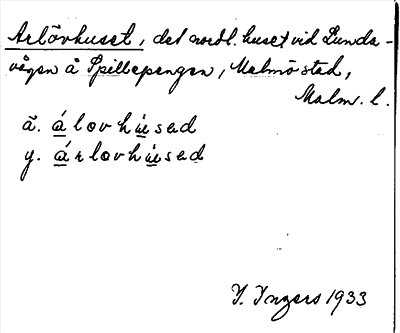 Arlövhuset, det nordl. huset vid Lunda-
vägen å Spillepengen, Malmö stad,
Malm. l.
ä. álovhúsad
y. árlovhúsad
I. Ingers 1933